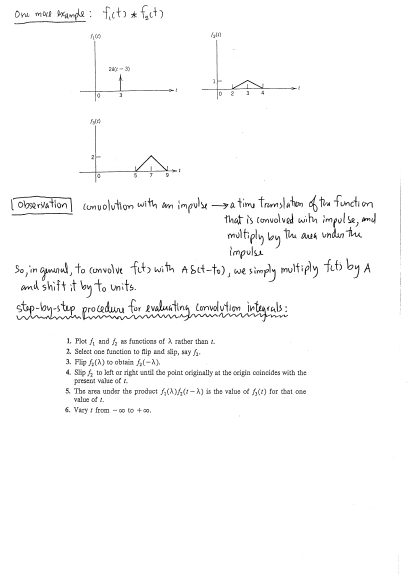 One more example: f₁(t) * f₂(t)
f₁(t)
2δ(t − 3)
t
0
3
f₂(t)
1
t
0 2 3 4
f₃(t)
2
t
0
5 7 9
Observation convolution with an impulse → a time translation of the function
that is convolved with impulse, and
multiply by the area under the
impulse
So, in general, to convolve f(t) with A δ(t−t₀), we simply multiply f(t) by A
and shift it by t₀ units.
step-by-step procedure for evaluating convolution integrals:
1. Plot f₁ and f₂ as functions of λ rather than t.
2. Select one function to flip and slip, say f₂.
3. Flip f₂(λ) to obtain f₂(−λ).
4. Slip f₂ to left or right until the point originally at the origin coincides with the
present value of t.
5. The area under the product f₁(λ)f₂(t − λ) is the value of f₃(t) for that one
value of t.
6. Vary t from −∞ to +∞.